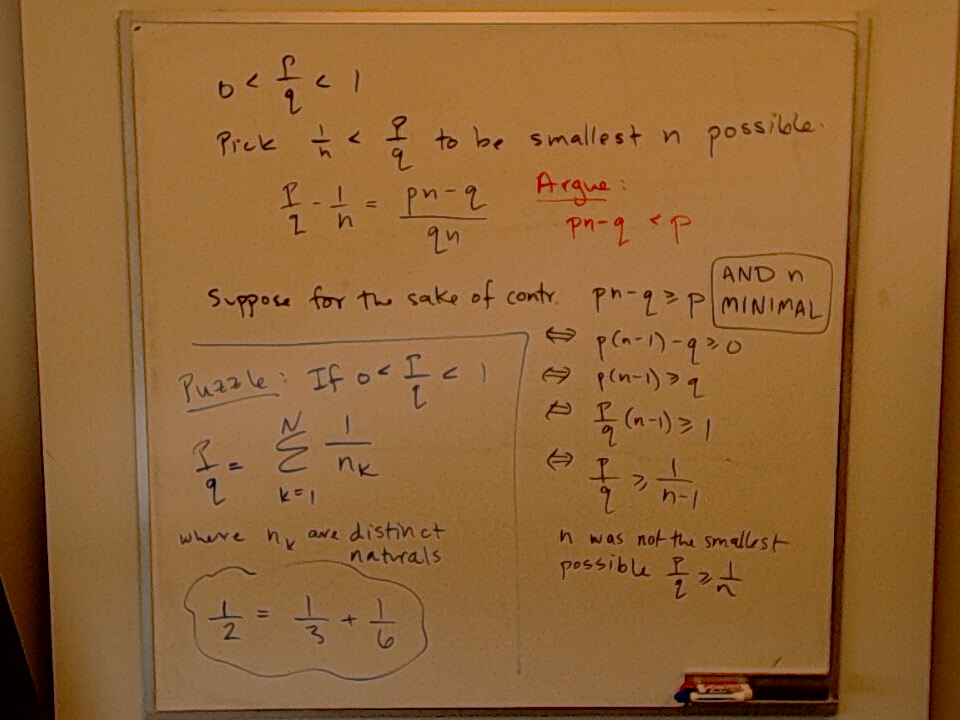 0 < p/q < 1
Pick 1/n < p/q to be smallest n possible.
p/q - 1/n = (pn-q)/(qn)
Argue:
pn-q < p
Suppose for the sake of contr. pn-q ≥ p
AND n
MINIMAL
⇔ p(n-1)-q ≥ 0
⇔ p(n-1) ≥ q
⇔ p/q (n-1) ≥ 1
⇔ p/q ≥ 1/(n-1)
n was not the smallest
possible p/q ≥ 1/n
Puzzle: If 0 < p/q < 1
p/q = ∑_{k=1}^{N} 1/n_k
where n_k are distinct
naturals
1/2 = 1/3 + 1/6